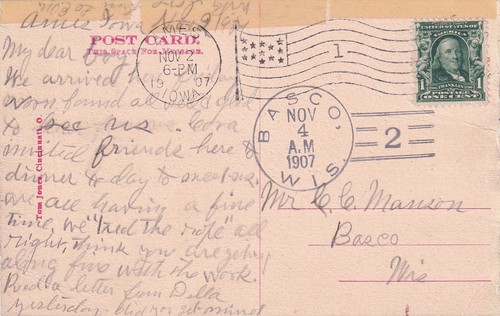 Ames Iowa Nov 2/07
POST CARD.
THIS SPACE FOR MESSAGE.
AMES
NOV 2
6-PM
1907
IOWA
1
UNITED STATES OF AMERICA
FRANKLIN
POSTAGE
1
ONE CENT
My dear
We arrived here
found all
to see us. Cora
invited friends here to
dinner to day to meet us.
are all having a fine
time, we "
right, think you are getting
along fine with the work.
Read a letter from Della
yesterday. did you get mine
BASCO
NOV
4
A.M
1907
WIS.
2
Tom Jones, Cincinnati, O.
Mr C. C. Manson
Basco
Wis